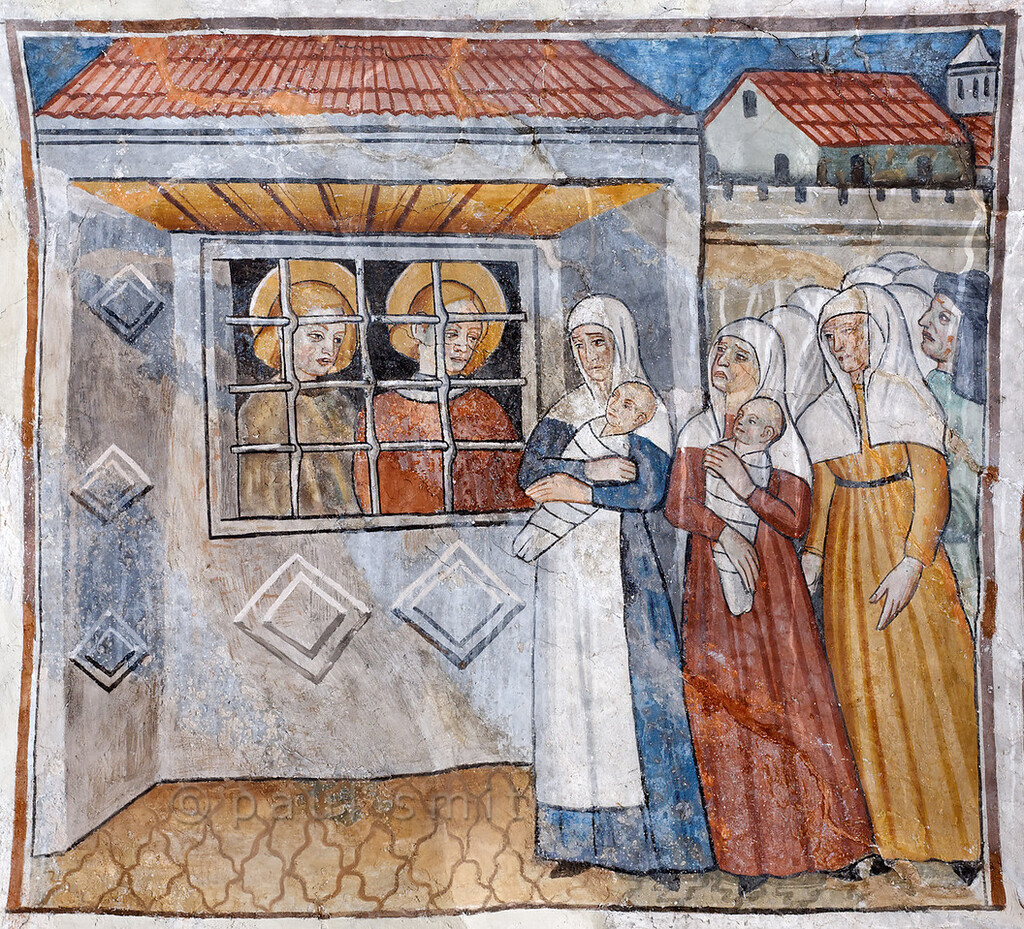 © paul smit